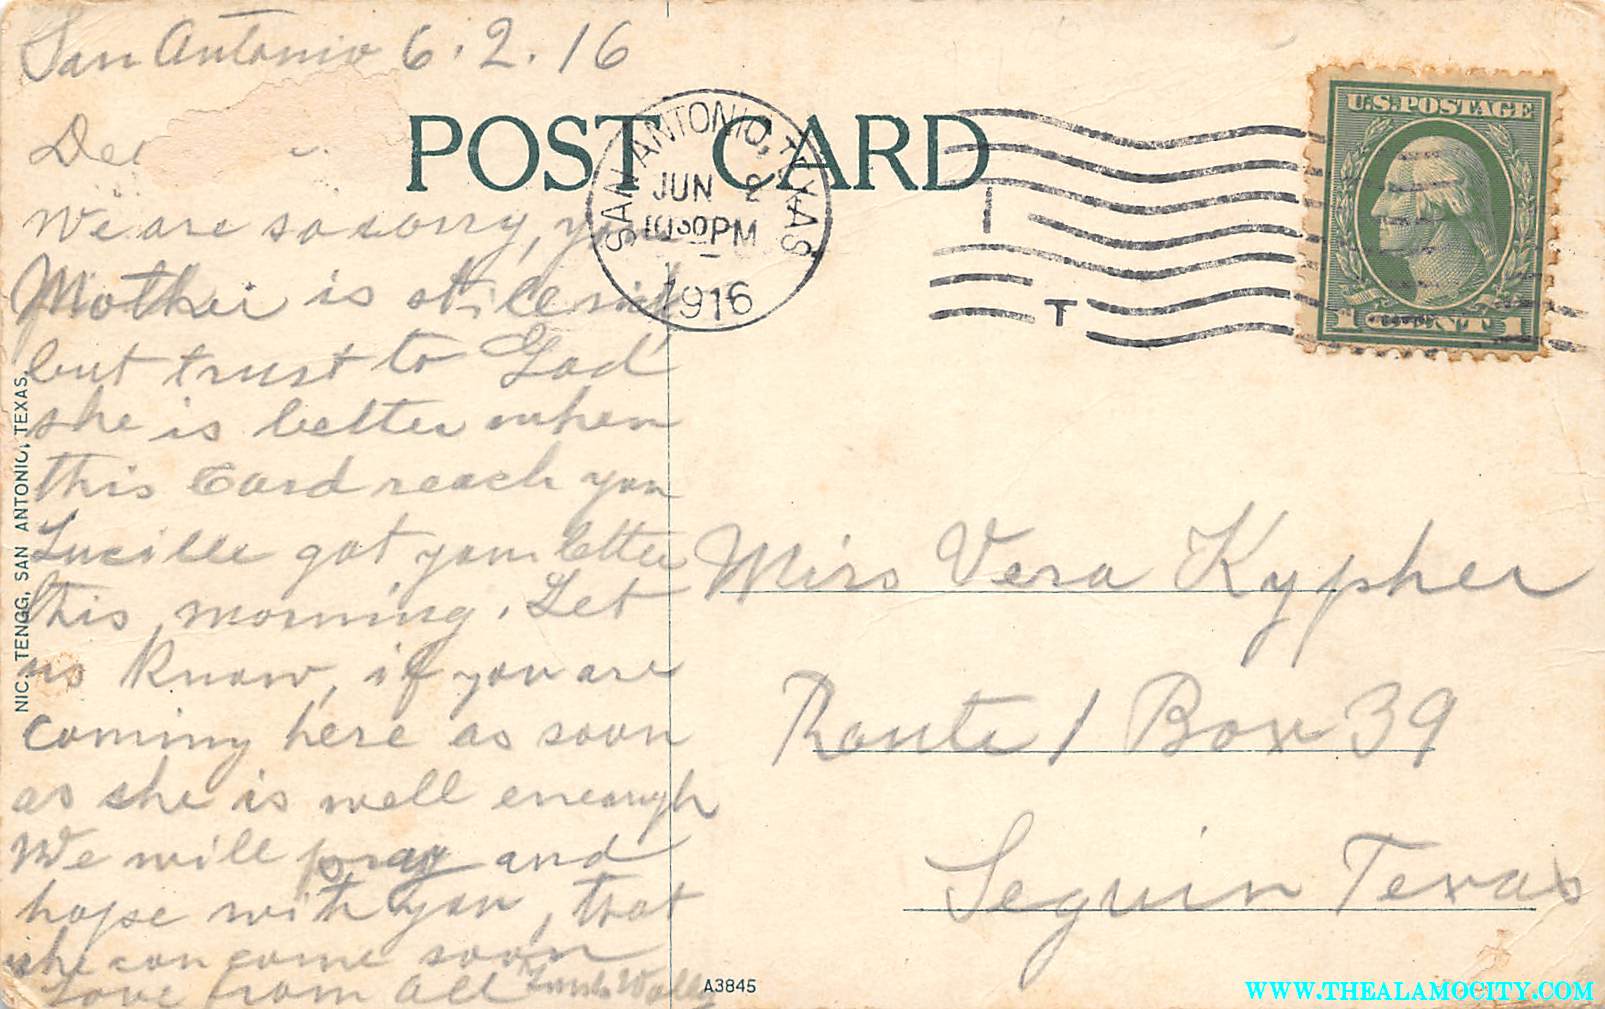 San Antonio 6.2.16
We are so sorry, your
Mother is still sick
but trust to God
she is better when
this Card reach you
Lucille got your letter
this morning. Let
us know, if you are
coming here as soon
as she is well enough
We will pray and
hope with you, that
she can come soon
Love from all
POST CARD
SAN ANTONIO, TEXAS
JUN 2
1030PM
1916
T
U.S.POSTAGE
1 CENT 1
Miss Vera Kypher
Route 1 Box 39
Seguin Texas
NIC. TENGG, SAN ANTONIO, TEXAS.
A3845
WWW.THEALAMOCITY.COM